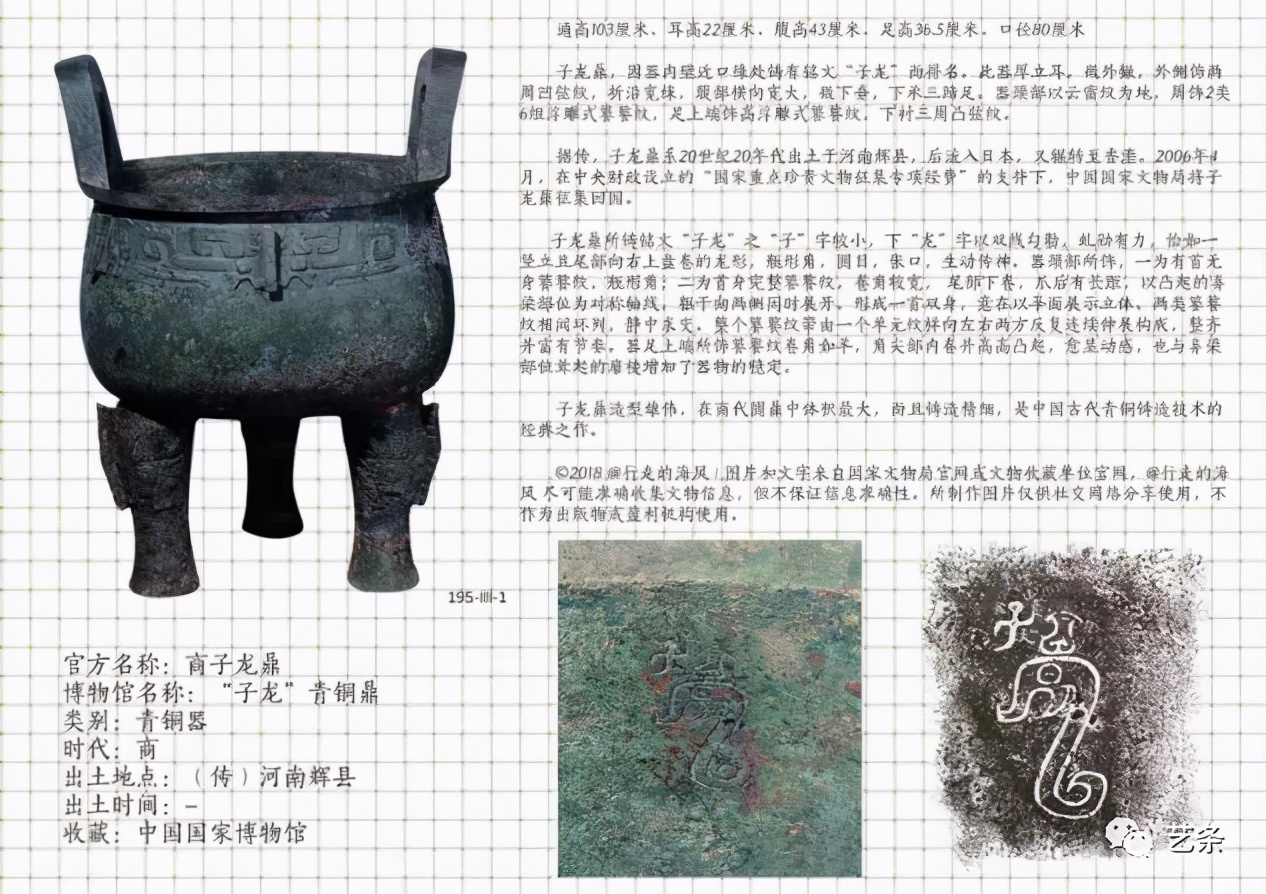 通高103厘米、耳高22厘米、腹高43厘米、足高36.5厘米。口径80厘米
子龙鼎，因器内壁近口缘处铸有铭文“子龙”而得名。此器厚立耳，微外撇，外侧饰两
周凹弦纹，折沿宽缘，腹部横向宽大，微下垂，下承三蹄足。器颈部以云雷纹为地，周饰2类
6组浮雕式饕餮纹，足上端饰高浮雕式饕餮纹，下衬三周凸弦纹。
据传，子龙鼎系20世纪20年代出土于河南辉县，后流入日本，又辗转至香港。2006年4
月，在中央财政设立的“国家重点珍贵文物征集专项经费”的支持下，中国国家文物局将子
龙鼎征集回国。
子龙鼎所铸铭文“子龙”之“子”字较小，下“龙”字以双线勾勒，虬劲有力，恰如一
竖立且尾部向右上盘卷的龙形，瓶形角，圆目，张口，生动传神。器颈部所饰，一为有首无
身饕餮纹，瓶形角；二为首身完整饕餮纹，卷角较宽，尾部下卷，爪后有长距，以凸起的鼻
梁部位为对称轴线，躯干向两侧同时展开，形成一首双身，意在以平面展示立体。两类饕餮
纹相间环列，静中求变。整个饕餮纹带由一个单元纹样向左右两方反复连续伸展构成，整齐
并富有节奏。器足上端所饰饕餮纹卷角如羊，角尖部内卷并高高凸起，愈显动感，也与鼻梁
部位耸起的扉棱增加了器物的稳定。
子龙鼎造型雄伟，在商代圆鼎中体积最大，而且铸造精细，是中国古代青铜铸造技术的
经典之作。
©2018 @行走的海风 | 图片和文字来自国家文物局官网或文物收藏单位官网，@行走的海
风尽可能准确收集文物信息，但不保证信息准确性。所制作图片仅供社交网络分享使用，不
作为出版物或营利机构使用。
195-III-1
官方名称：商子龙鼎
博物馆名称：“子龙”青铜鼎
类别：青铜器
时代：商
出土地点：（传）河南辉县
出土时间：-
收藏：中国国家博物馆
艺条